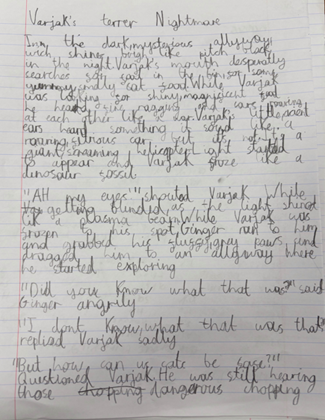 Varjak's terrer Nightmare
Inn the dark,mysterious alleyway
with shiney brigh like pitch black
in the night.Varjak's mouth desperally
searches for said in the
yummy smely cat food.While Varjak
was looking for shiny,magnificent
he heard cars roaring
at each other like a war.Varjak's
ears heard something it sond like a
roaring citrous car but its not its a
giant screaming helicopter.Light started
to appear and Varjak froze like a
dinosaur fossil
"AH my eyes"" should Varjak While
getting blinded as the light shined
like a plasma beam.While Varjak was
frozen to his spot,Ginger ran to him
and grabbed his fluffy,gray paws and
dragged him to an allyway where
he started exploring
"Did you know what that was?" said
Ginger angrily
"I dont know,what that was that"
replied Varjak sadly
"But how can us cats be safe?"
Questioned Varjak.He was still hearing
those chopping dangerous chopping